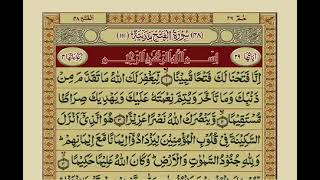 حٰمٓ ۲۶ الفتح ۴۸
(۴۸) سُوْرَةُ الْفَتْحِ مَدَنِیَّةٌ (۱۱۱)
اٰیَاتُهَا ۲۹ بِسْمِ اللّٰهِ الرَّحْمٰنِ الرَّحِیْمِ رُكُوْعَاتُهَا ۴
اِنَّا فَتَحْنَا لَكَ فَتْحًا مُّبِیْنًا ۙ لِّیَغْفِرَ لَكَ اللّٰهُ مَا تَقَدَّمَ مِنْ
ذَنْۢبِكَ وَمَا تَاَخَّرَ وَیُتِمَّ نِعْمَتَهٗ عَلَیْكَ وَیَهْدِیَكَ صِرَاطًا
مُّسْتَقِیْمًا ۙ وَّیَنْصُرَكَ اللّٰهُ نَصْرًا عَزِیْزًا هُوَ الَّذِیْۤ اَنْزَلَ
السَّكِیْنَةَ فِیْ قُلُوْبِ الْمُؤْمِنِیْنَ لِیَزْدَادُوْۤا اِیْمَانًا مَّعَ اِیْمَانِهِمْ ؕ
وَلِلّٰهِ جُنُوْدُ السَّمٰوٰتِ وَالْاَرْضِ ؕ وَكَانَ اللّٰهُ عَلِیْمًا حَكِیْمًا ۙ